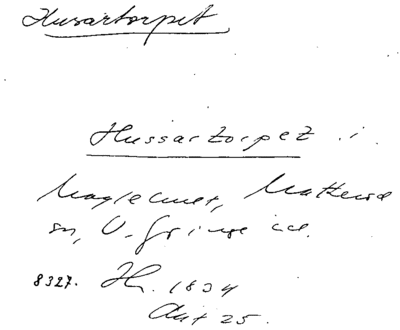 Husartorpet
Hussartorpet i
Maglehult, Matterö
sn, V. Göinge hd.
8327. Hr. 1834
Akt 25.